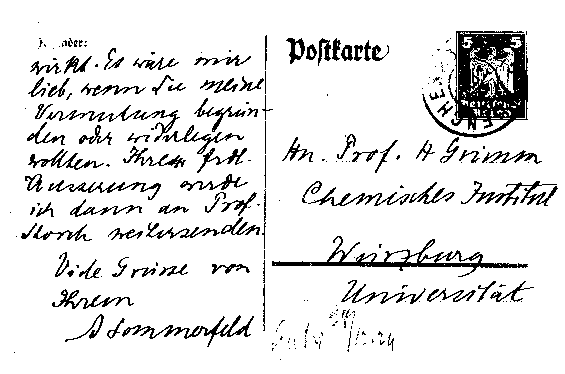 wirkt. Es wäre mir
lieb, wenn Sie meine
Vermutung begrün-
den oder widerlegen
wollten. Ihre frdl.
Äusserung werde
ich dann an Prof.
Storch weitersenden
Viele Grüsse von
Ihrem
A Sommerfeld
Postkarte
5 5
Hn. Prof. H Grimm
Chemisches Institut
Würzburg
Universität